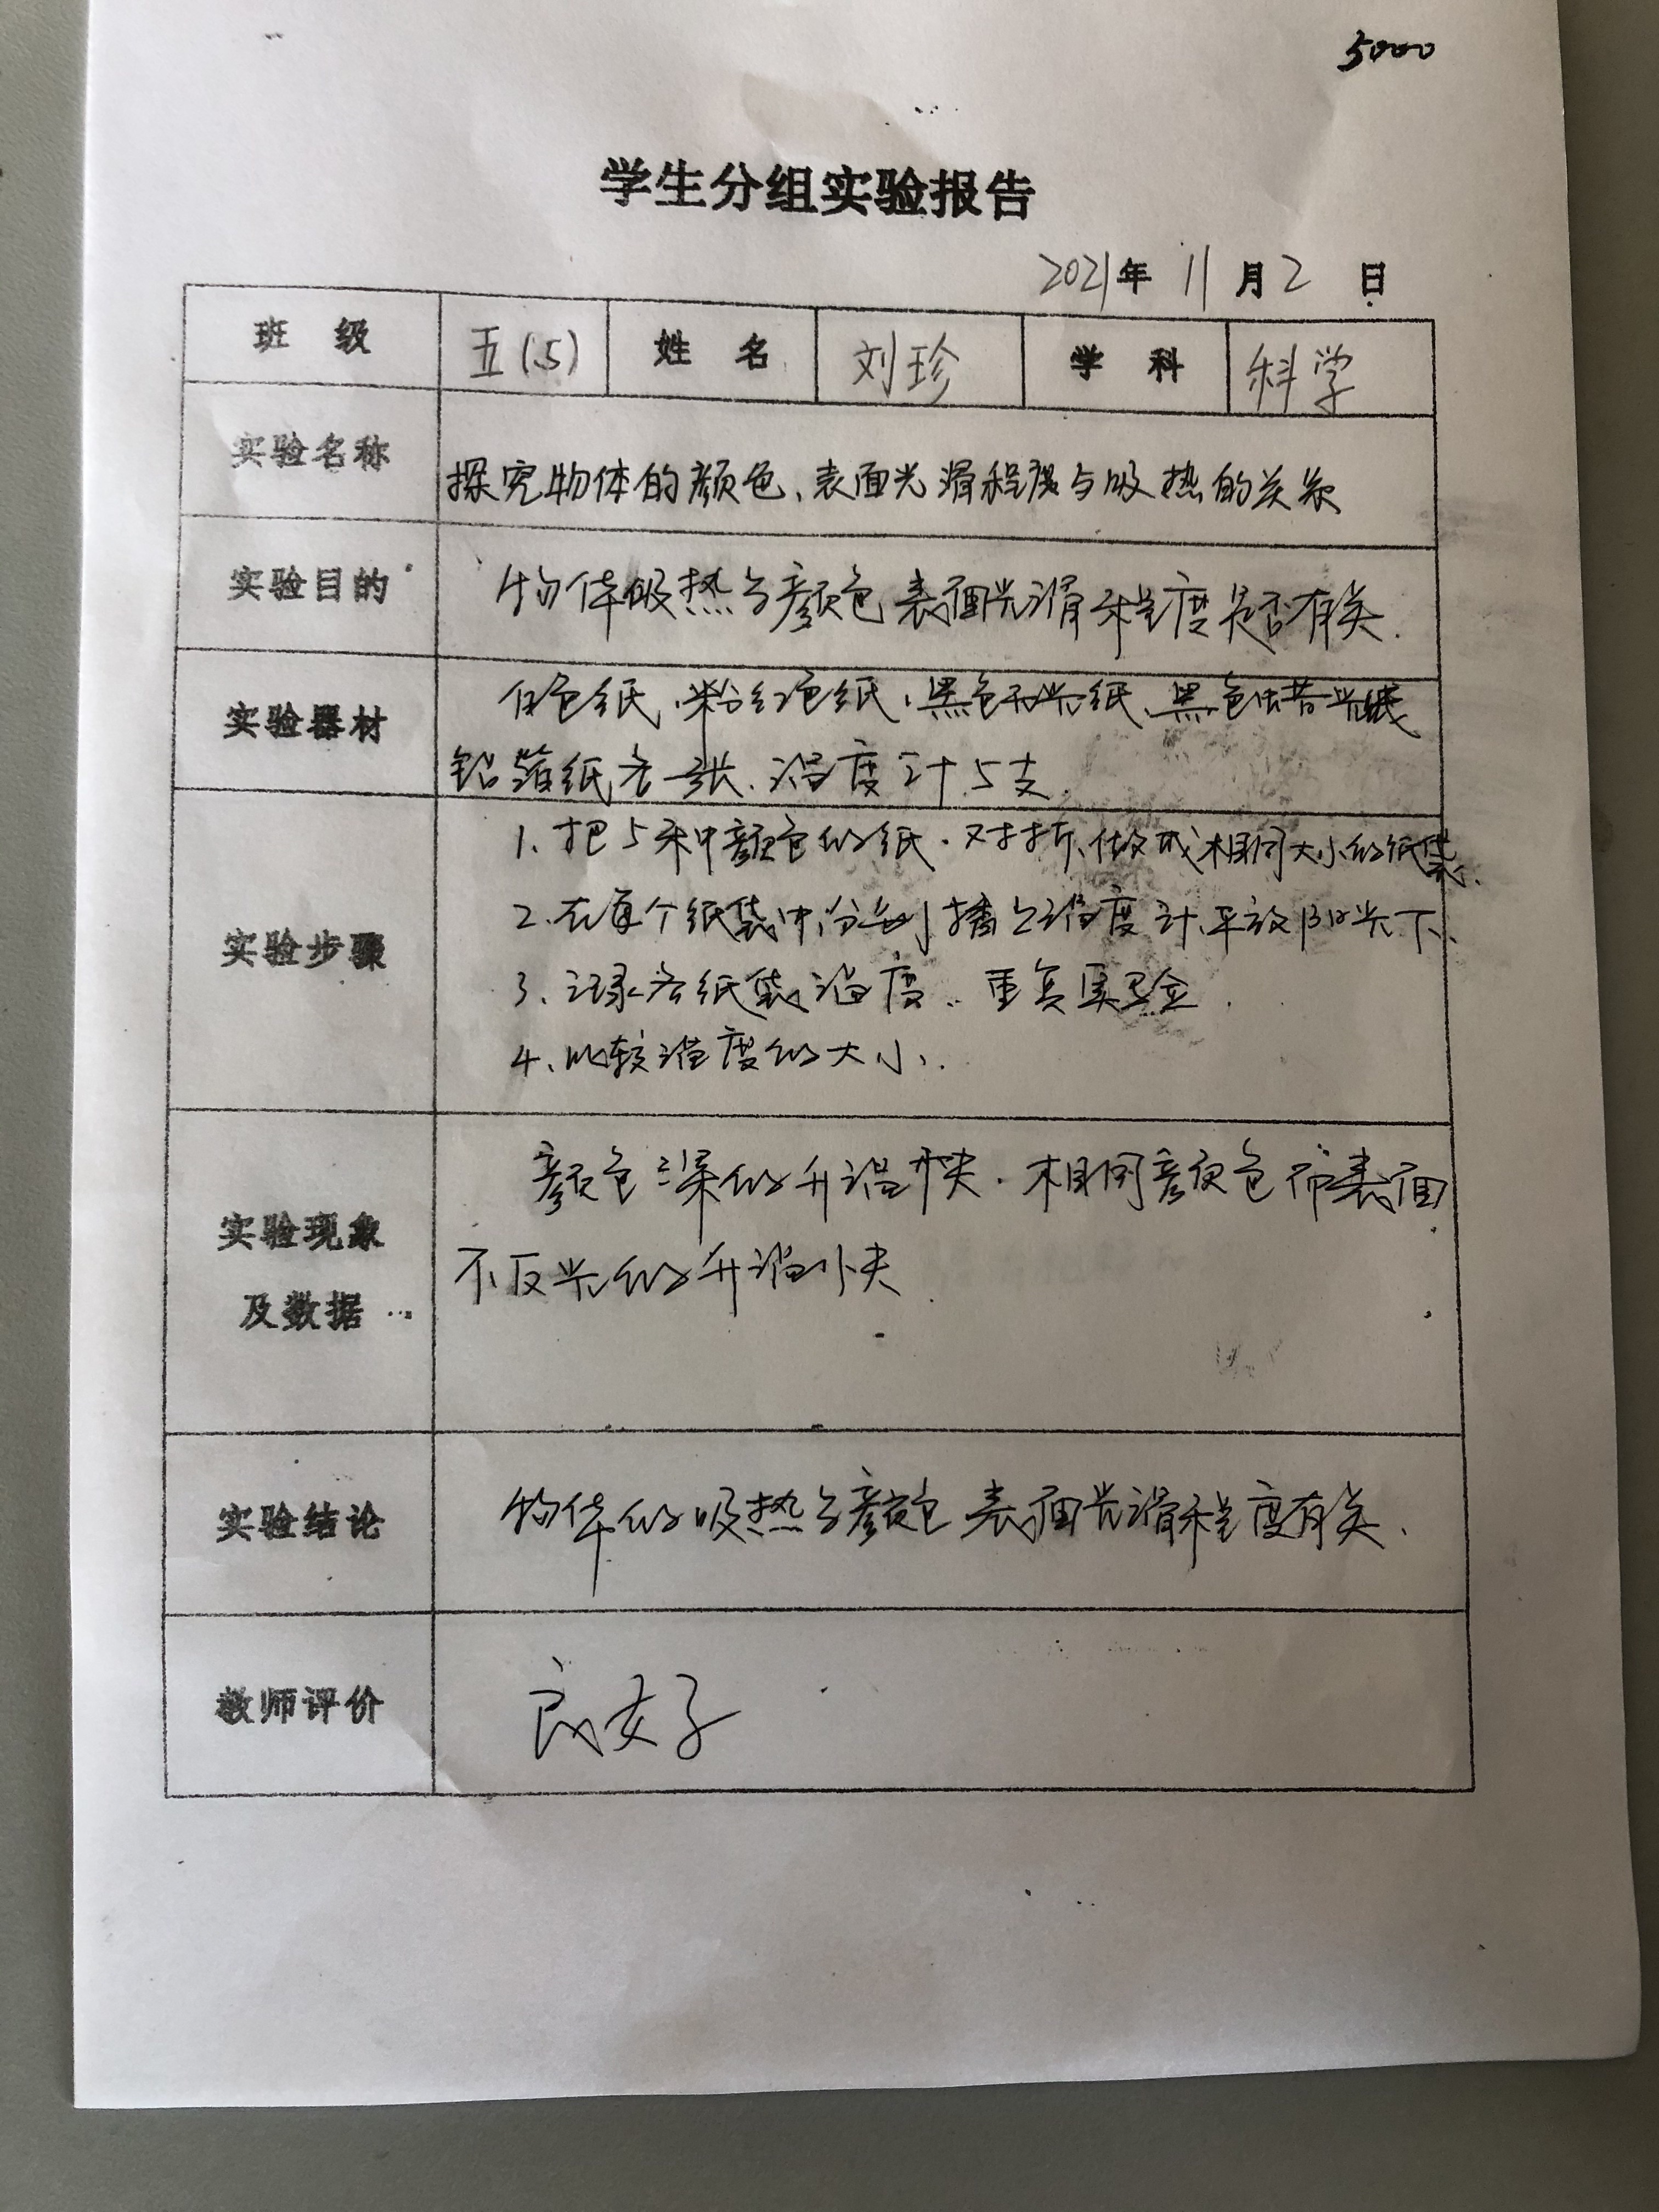 5000
学生分组实验报告
2021年 11月2日
班级 五(5) 姓名 刘珍 学科 科学
实验名称 探究物体的颜色、表面光滑程度与吸热的关系
实验目的 物体吸热与颜色表面光滑程度是否有关.
实验器材 白色纸、粉红色纸、黑色 光纸、黑色蜡光纸
铝箔纸各一张、温度计5支.
实验步骤
1、把5种颜色的纸.对折、做成相同大小的纸袋.
2、在每个纸袋中分别插上温度计、平放阳光下、
3、记录各纸袋温度、重复实验.
4、比较温度的大小、
实验现象
及数据
颜色深的升温快.相同颜色而表面
不反光的升温快.
实验结论 物体的吸热与颜色表面光滑程度有关.
教师评价 良好